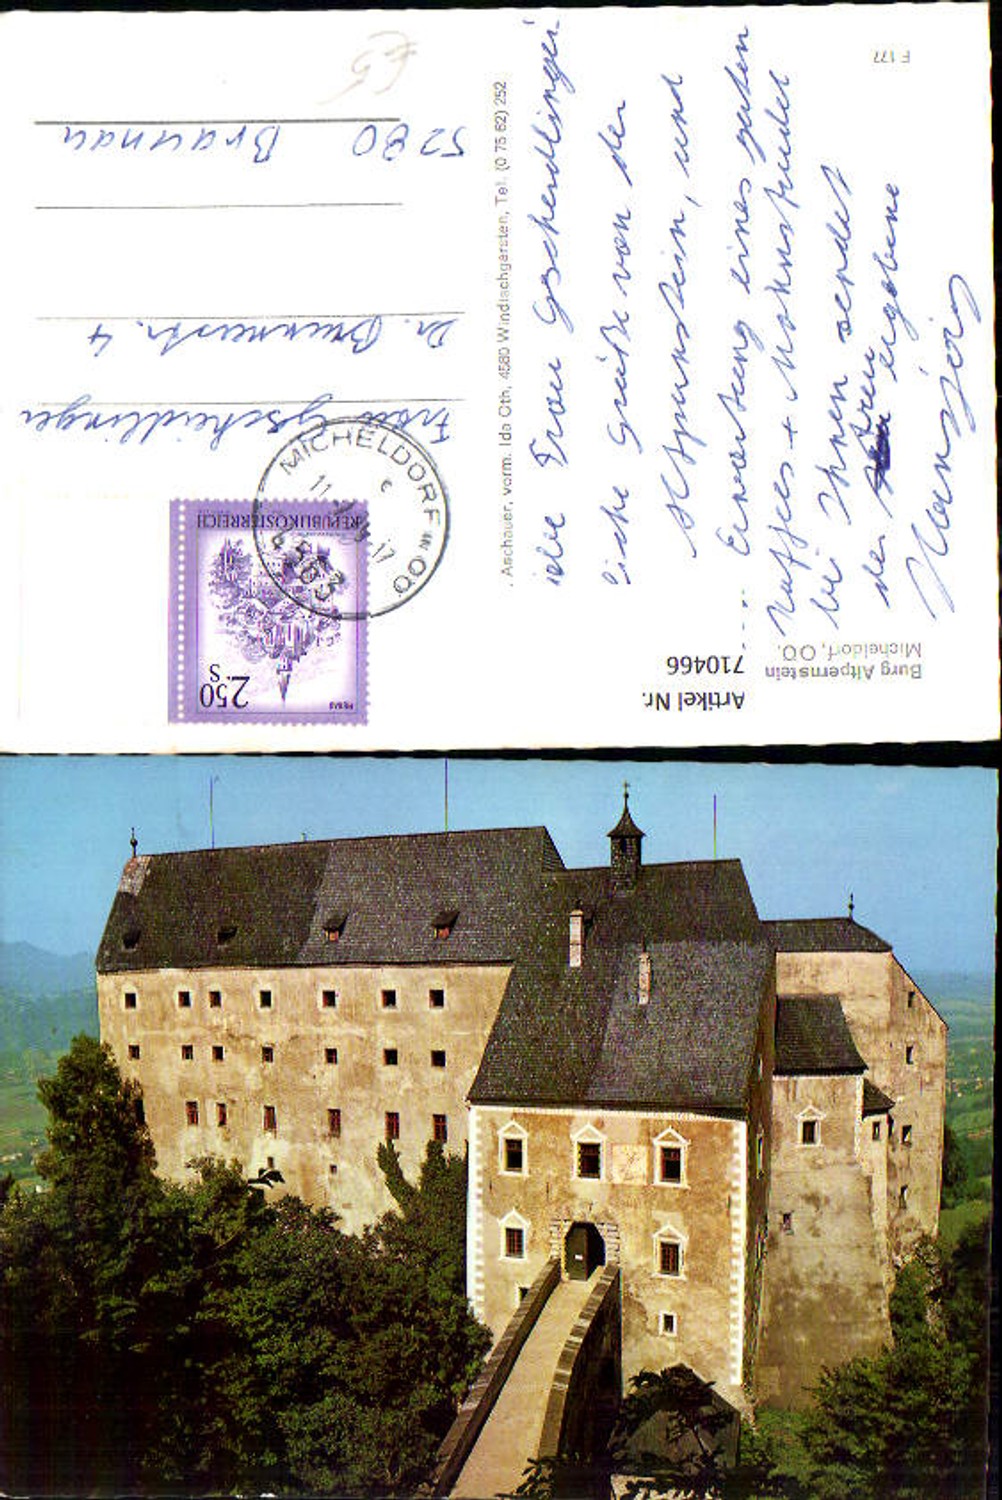 F 177
Liebe Frau Gscheidlinger
liche Grüße von der
Altpernstein, und
.... Erwartung eines guten
Kaffees + Mohnstrudel
bei Ihnen sendet
der Ihnen ergebene
Burg Altpernstein
Micheldorf, OÖ.
Artikel Nr.
710466
. Aschauer, vorm. Ida Oth, 4580 Windischgarsten, Tel. (0 75 62) 252
2.50
S
REPUBLIK ÖSTERREICH
MICHELDORF in OÖ
4563
11. -17
Frau Gscheidlinger
Dr. 4
5280 Braunau
€5